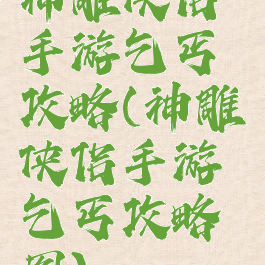 神雕侠侣
手游乞丐
攻略(神雕
侠侣手游
乞丐攻略
图)